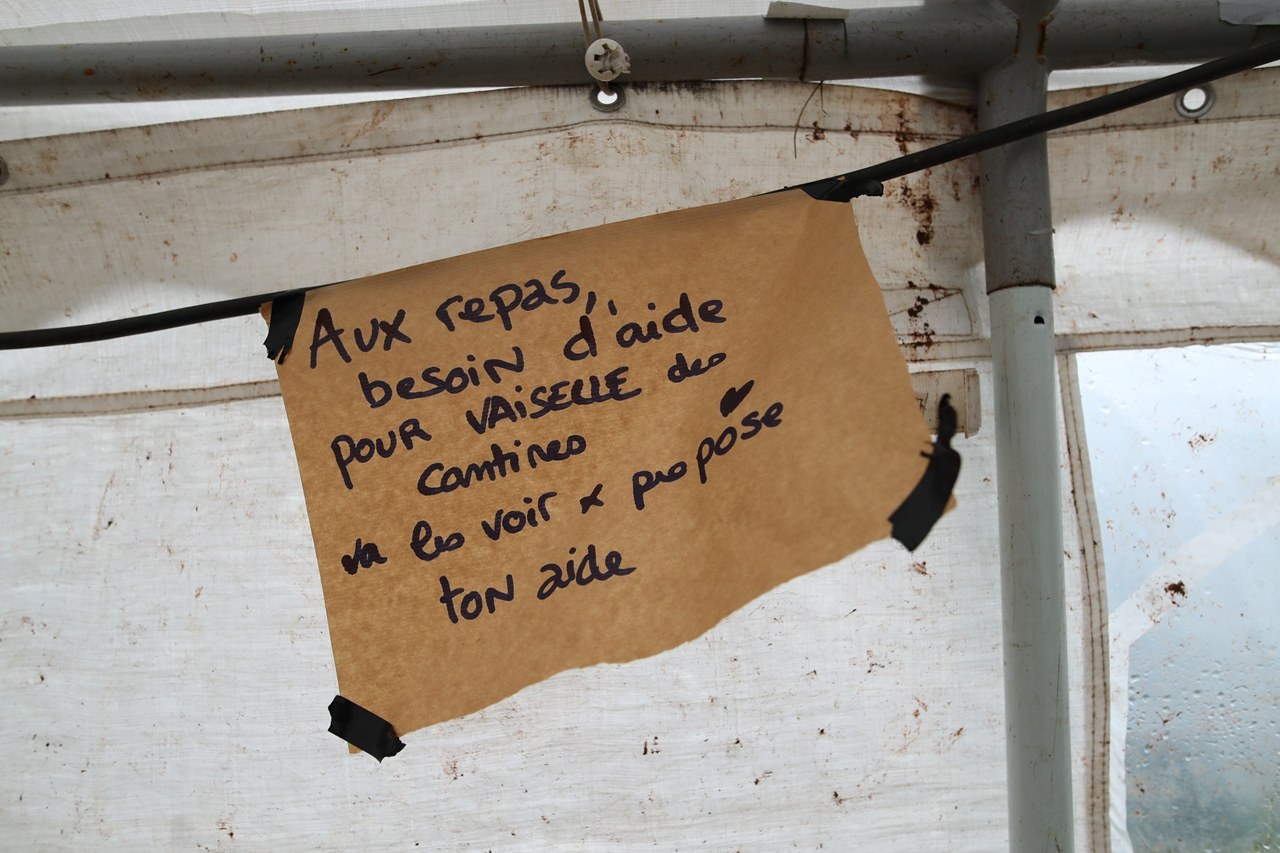 Aux repas,
besoin d'aide
pour VAiSELLE des
cantines
va les voir & propose
ton aide